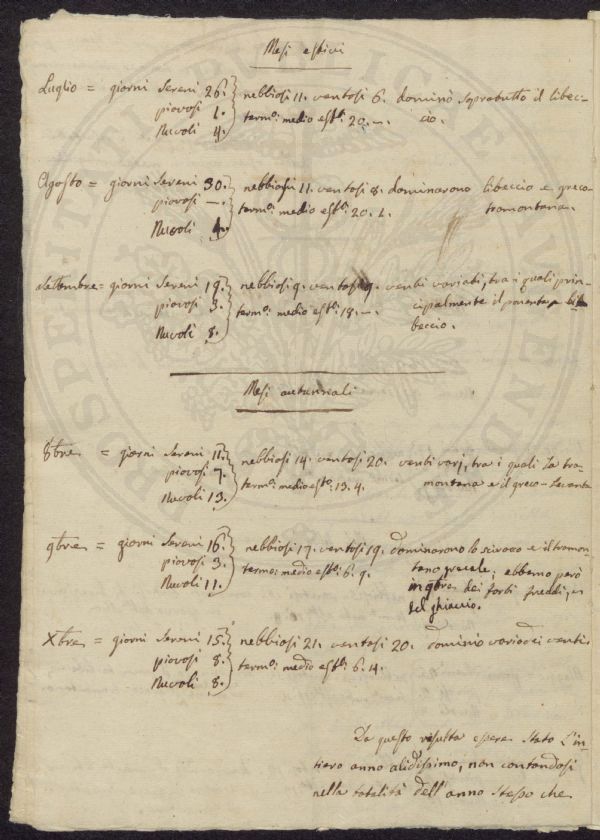 Mesi estivi
Luglio = giorni Sereni 26. nebbiosi 11. ventosi 6. dominò sopratutto il libec-
piovosi 1. term.º medio est.le 20. –. cio.
Nuvoli 4.
Agosto = giorni Sereni 30. nebbiosi 11. ventosi 8. dominarono libeccio e greco-
piovosi –. term.º medio est.le 20. 1. tramontana.
Nuvoli 1.
Settembre = giorni Sereni 19. nebbiosi 9. ventosi 9. venti variati, tra i quali prin-
piovosi 3. term.º medio est.le 18. –. cipalmente il ponente e li-
Nuvoli 8. beccio.
Mesi autunnali
8bre = giorni Sereni 11. nebbiosi 14. ventosi 20. venti varj, tra i quali la tra-
piovosi 7. term.º medio est.º 13. 4. montana e il greco-levante
Nuvoli 13.
9bre = giorni Sereni 16. nebbiosi 17. ventosi 19. dominarono lo sciroco e il tramon-
piovosi 3. termo: medio est.le 6. 9. tano grecale; ebbemo però
Nuvoli 11. in 9bre dei forti freddi, e
del ghiaccio.
Xbre = giorni Sereni 15. nebbiosi 21. ventosi 20. dominio vario dei venti.
piovosi 8. term.º medio est.le 6. 4.
Nuvoli 8.
Da questo risulta essere stato l'in-
tiero anno alidissimo, non contandosi
nella totalità dell'anno stesso che